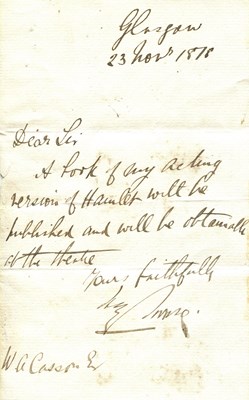 Glasgow
23 Novr 1878
Dear Sir
A book of my acting
version of Hamlet will be
published and will be obtainable
at the theatre
Yours faithfully
W A Casson Er